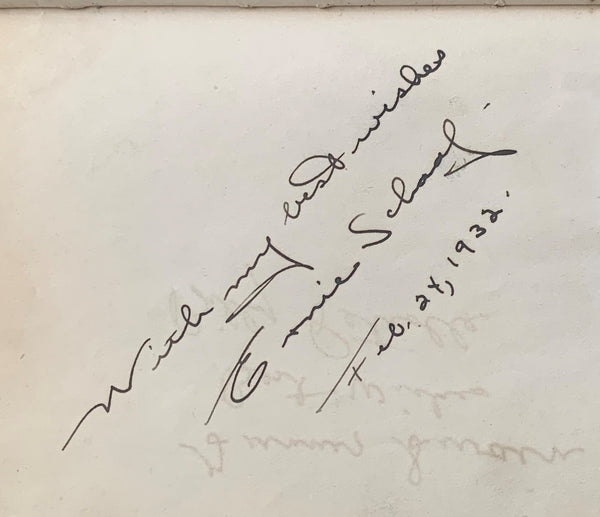 With my best wishes
Ernie Schaaf.
Feb. 24, 1932.